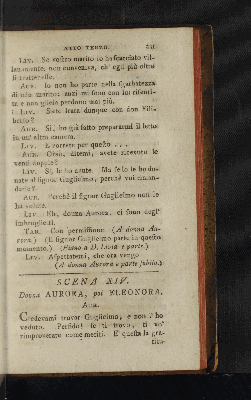 ATTO TERZO.
Liv. Se vostro marito lo ha scacciato vil-
lanamente, non conveniva, ch' egli più oltre
si trattenesse.
Aur. Io non ho parte nella sgarbatezza
di mio marito: anzi mi sono con lui risentita
e non gliela perdono mai più.
Liv. Siete stata dunque con don Fili-
berto?
Aur. Sì; ho già fatto prepararmi il letto
in un' altra camera.
Liv. E vorrete per questo ...
Aur. Orsù, ditemi, avete ricevuto le
venti doppie?
Liv. Sì, le ho avute. Ma se io le ho do-
nate al signor Guglielmo, perchè voi
Aur. Perchè il signor Guglielmo non le
ha volute.
Liv. Eh, donna Aurora, ci sono degl'
imbroglietti.
Tar. Con permissione. (A donna Au-
rora.) (E il signor Guglielmo parte in questo
momento.) (Piano a D. Livia e parte.)
Liv. Aspettatemi, che ora vengo
(A donna Aurora e parte subito.)
SCENA XIV.
Donna AURORA, poi ELEONORA.
Aur.
Credevami trovar Guglielmo, e non l'ho
veduto. Perfido! se ti trovo, ti vo'
rimproverare come meriti. E questa la gra-